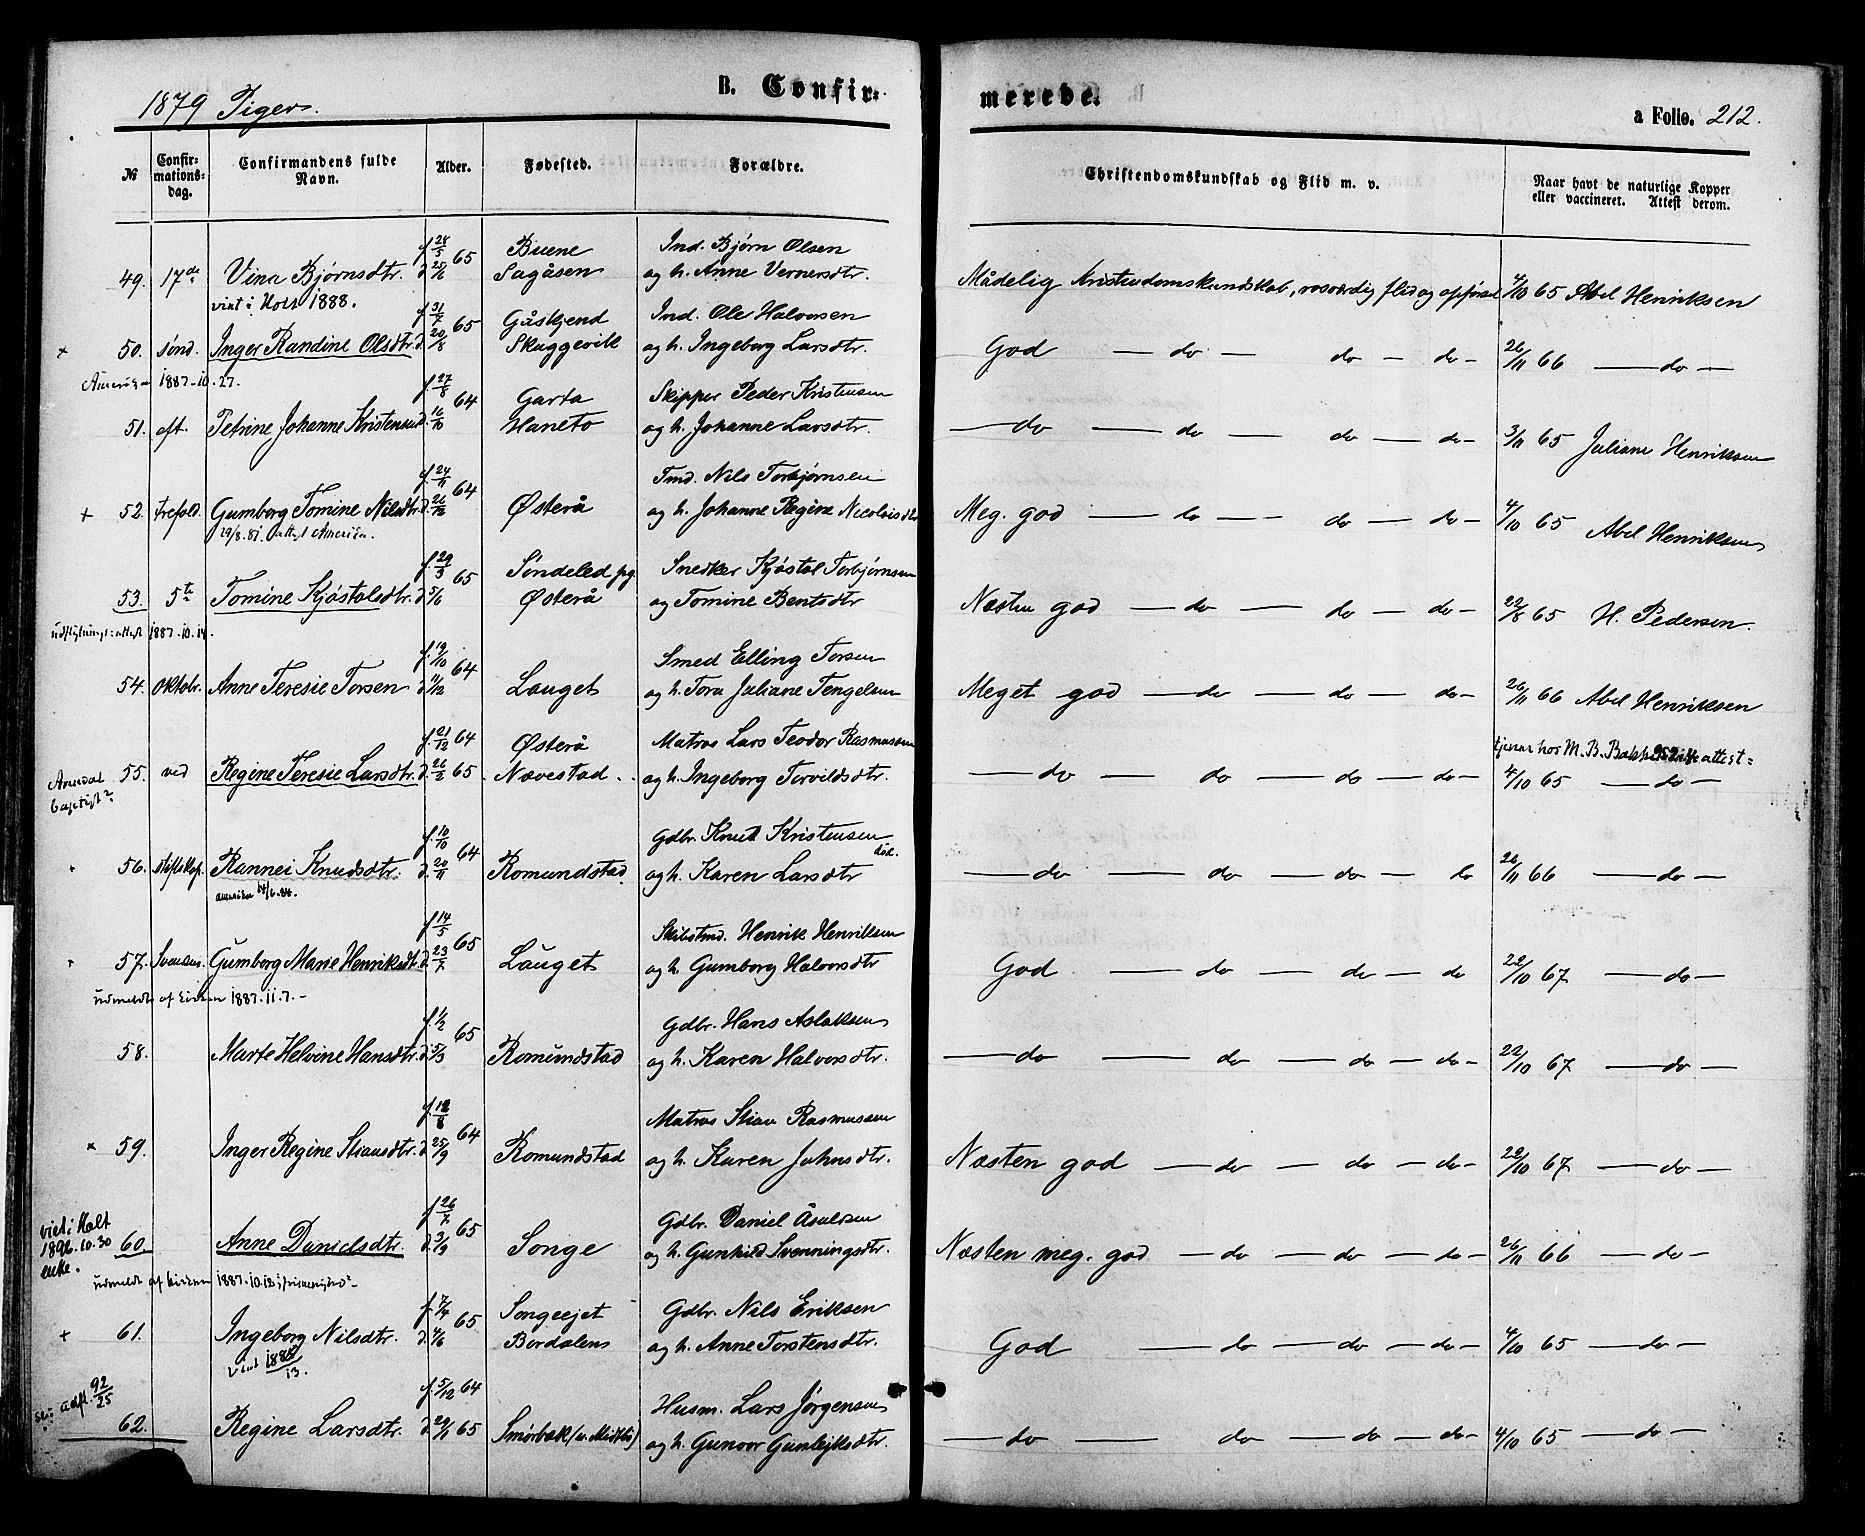 1879 Piger.
B. Confir-
merede.
a Folio. 212.
№
Confir-
mations-
dag.
Confirmandens fulde
Navn.
Alder.
Fødested.
Forældre.
Christendomskundskab og Flid m. v.
Naar havt de naturlige Kopper
eller vaccineret. Attest derom.
f. 24/5 65 Buene Ind. Bjørn Olsen
49. 17de Vina Bjørnsdtr. Sagåsen og h. Anne Vernersdtr. Mådelig Kristendomskundskab, rosværdig flid og opførsel 4/10 65 Abel Henriksen
viet i Holt 1888.
f. 31/7 65 Gåskjend Ind. Ole Halvorsen
+ 50. sønd. Inger Randine Olsdtr. d. 20/8 Skuggevik og h. Ingeborg Larsdtr. God — do — do — do — 26/11 66 — do —
Amerika 1887-10.27.
f. 27/8 64 Garta Skipper Peder Kristensen
51. eft. Petrine Johanne Kristensen d. 16/10 Haneto og h. Johanne Larsdtr. — do — do — do — do — 3/11 65 Juliane Henriksen
f. 24/11 64 Tmd. Nils Torbjørnsen
+ 52. trefold. Gumborg Tomine Nilsdtr. d. 26/12 Østerå og h. Johanne Regine Nicolaisdtr Meg. god — do — do — do — 4/10 65 Abel Henriksen
19/8.81. attest Amerika.
f. 29/3 65 Søndeled pg. Snedker Kjøstol Torbjørnsen
53. 5te Tomine Kjøstolsdtr. d. 5/6 Østerå og Tomine Bentsdtr Næsten god — do — do — do — 22/8 65 H. Pedersen.
udflytnings-attest 1887.10.14.
f. 19/10 64 Smed Elling Torsen
54. Oktobr. Anne Teresie Torsen d. 11/12 Lauget og h. Tora Juliane Tengelsen Meget god — do — do — do — 26/11 66 Abel Henriksen
f. 21/12 64 Østerå Matros Lars Teodor Rasmussen tjener hos M. B.
Arendal 55. ved Regine Teresie Larsdtr. d. 26/2 65 Nævestad. og h. Ingeborg Torvildsdtr. — do — do — do — do — 4/10 65 — do —
baptist?
f. 10/10 64 Gdbr. Knud Kristensen
56. stiftskap. Rannei Knudsdtr. d. 20/11 Romundstad. og h. Karen Larsdtr — do — do — do — do 26/11 66 — do —
amerika 14/6.84.
f. 14/5 65 Skibstmd. Henrik Henriksen
+ 57. Svensen. Gumborg Marie Henriksdt. d. 23/7 Lauget og h. Gumborg Halvorsdtr God — do — do — do 22/10 67 — do —
udmeldt af kirken 1887.11.7. —
f. 1/2 65 Gdbr. Hans Aslaksen
58. Marte Helvine Hansdtr. d. 5/3 Romundstad og h. Karen Halvorsdtr. — do — do — do — do — 22/10 67 — do —
f. 12/8 64 Matros Stian Rasmussen
× 59. Inger Regine Stiansdtr. d. 25/9 Romundstad og h. Karen Johnsdtr. Næsten god — do — do — do — 22/10 67 — do —
viet i Holt
1896.10.30
enke.
f. 26/7 65 Gdbr. Daniel Åsulvsen
60. Anne Danielsdtr. d. 3/9 Songe og h. Gunhild Svenningsdtr. Næsten meg. god — do — do — do — 26/11 66 — do —
udmeldt af kirken 1887.10.12
f. 7/4 65. Songeejet Gdbr. Nils Eriksen
+ 61. Ingeborg Nilsdtr. d. 4/6 Bordalens og h. Anne Torstensdtr. God — do — do — do — 4/10 65 — do —
viet 1888/13.
udfl. 92/25
f. 5/12 64 Husm. Lars Jørgensen
62. Regine Larsdtr. d. 29/1 65 Smørbæk og h. Gunvor Gunlejksdtr. — do — do — do — do — 4/10 65 — do —